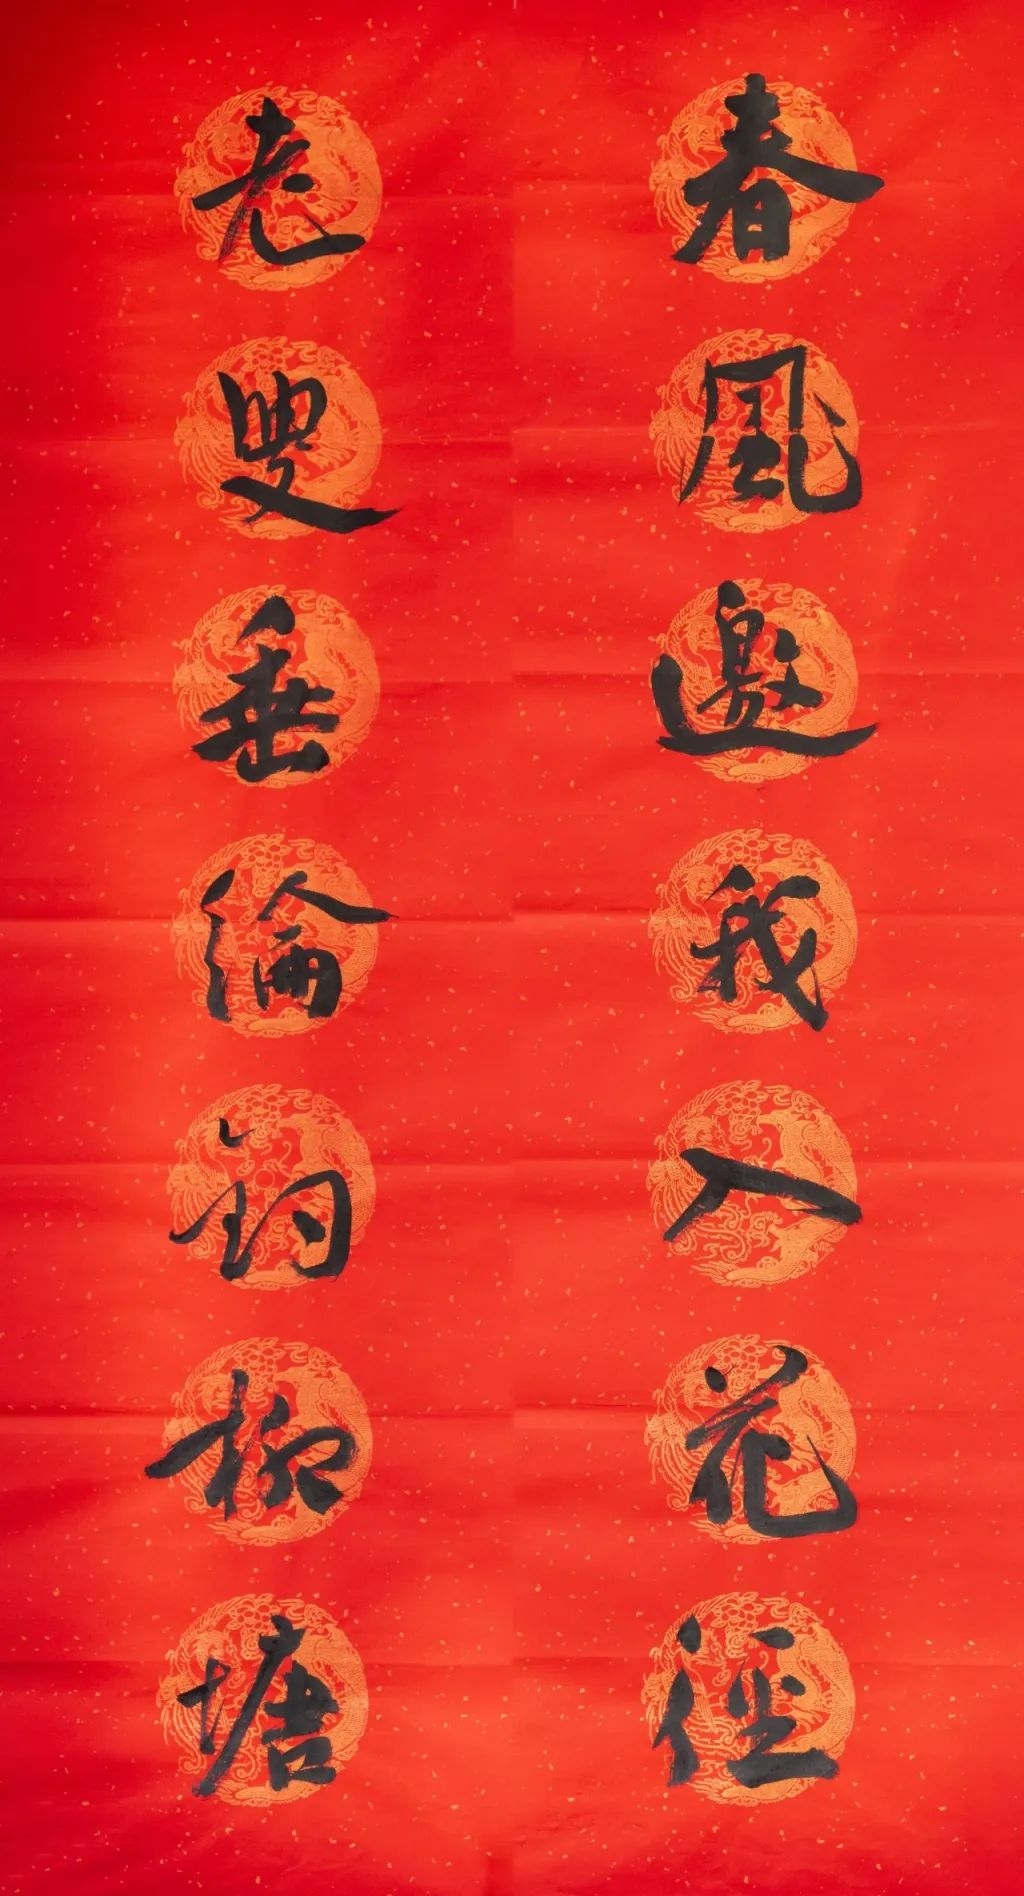 春風邀我入花徑
老叟垂綸釣柳塘